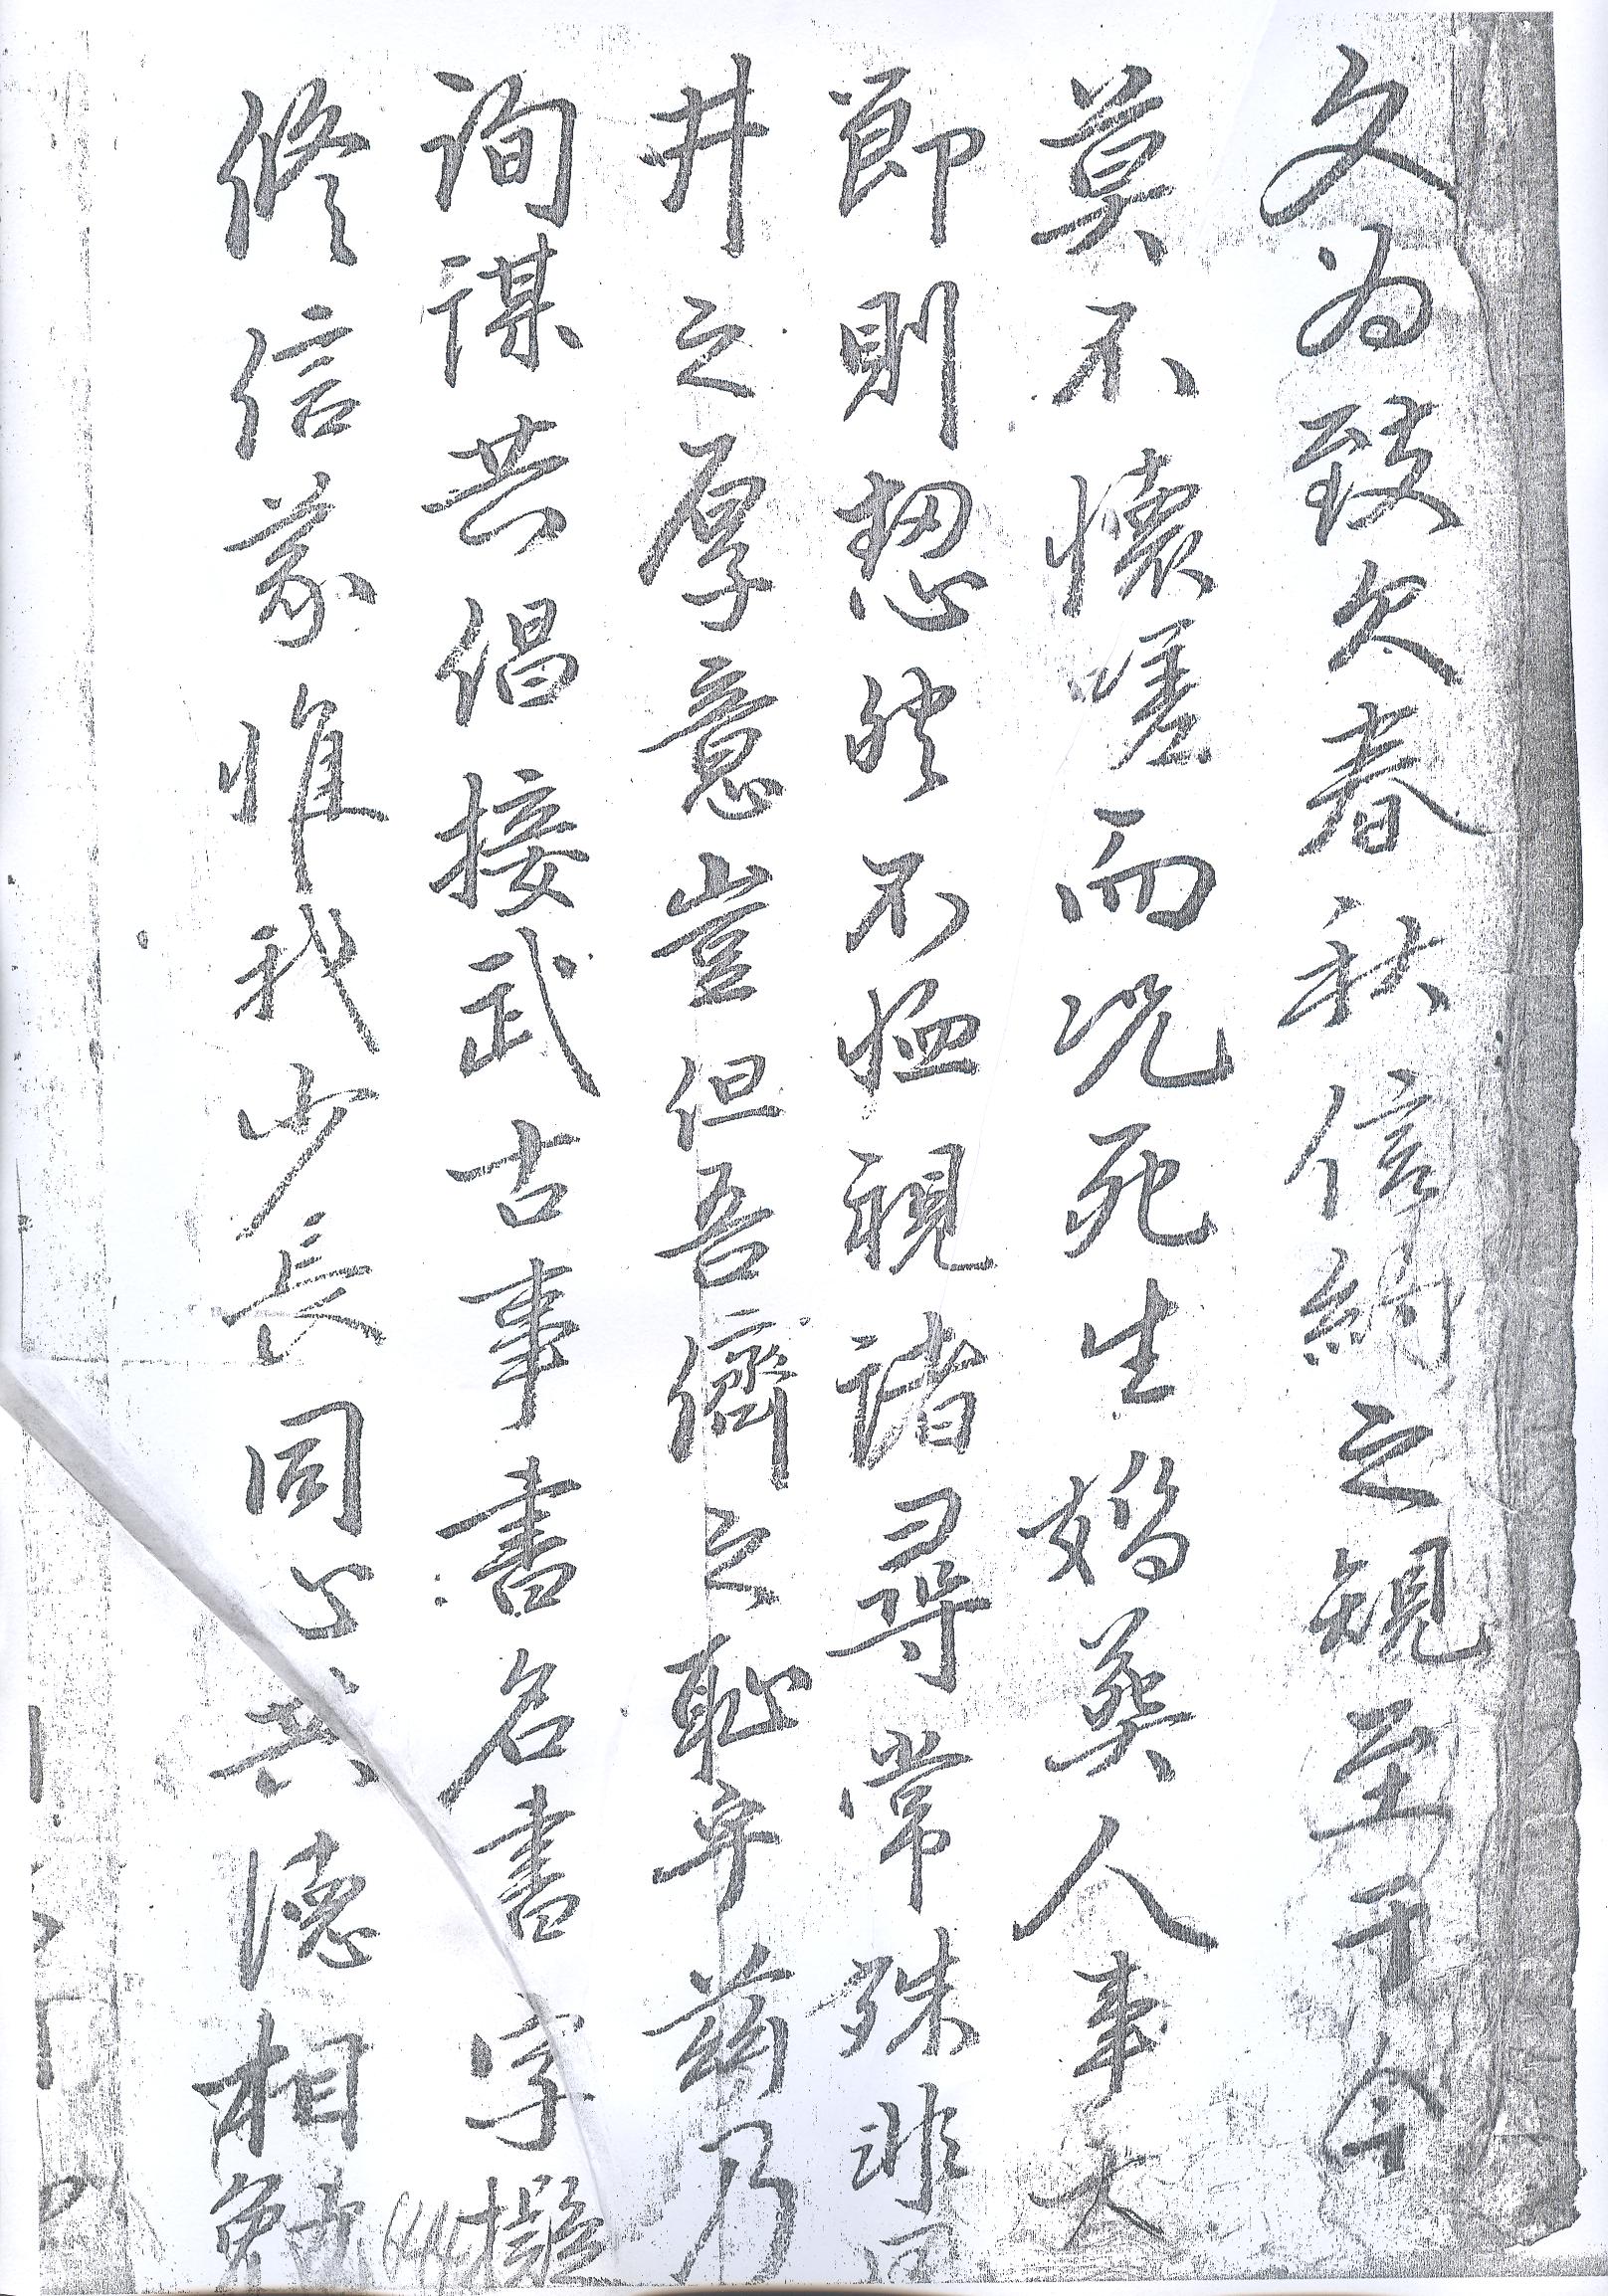 文为致欠春秋信約之規至于今
莫不懷嗟而况死生婚葬人事大
節則恝然不恤視諸尋常殊非同
井之厚意豈但吾儕之恥乎兹乃
詢謀共倡接武古事書名書字擬
修信義惟我少長同心共德相勉